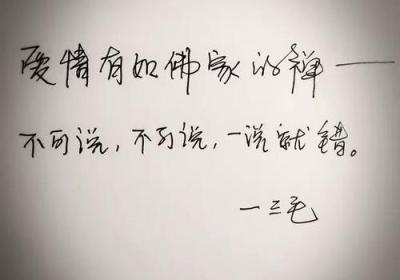 爱情有如佛家的禅——
不可说，不可说，一说就错。
—三毛